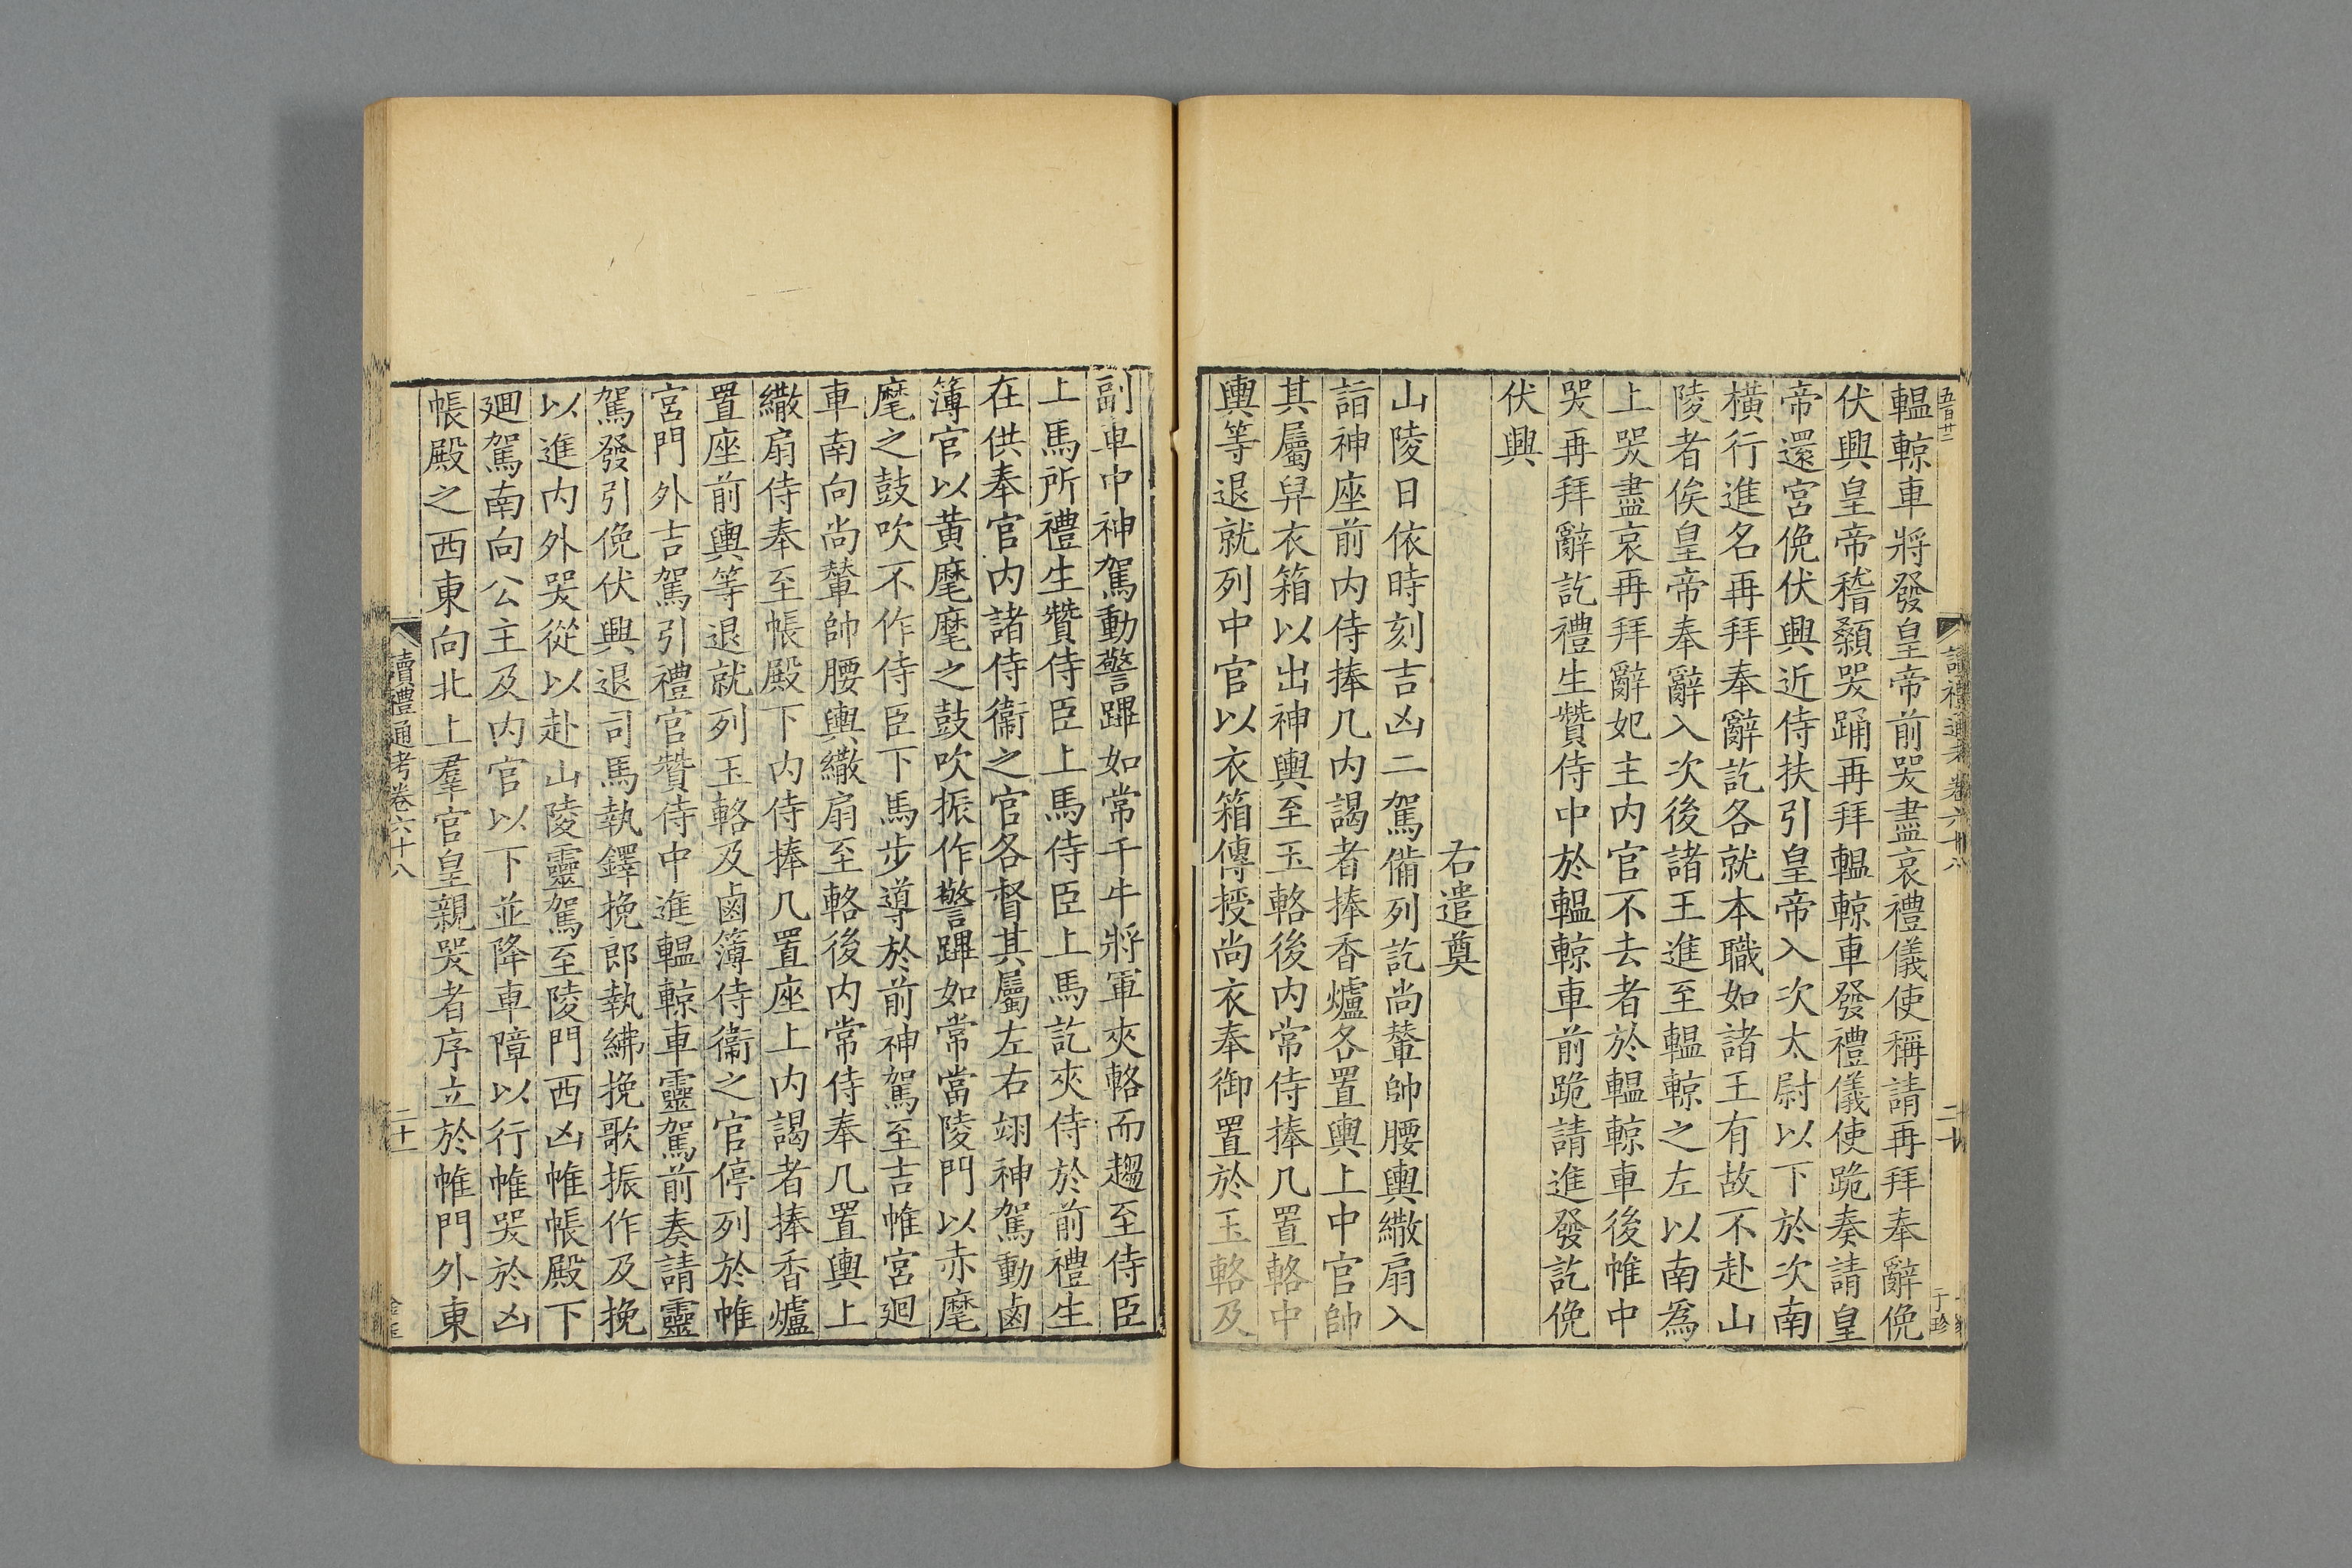 五百廿二
讀禮通考卷六十八
二十
于珍
轀輬車將發皇帝前哭盡哀禮儀使稱請再拜奉辭俛
伏興皇帝稽顙哭踊再拜轀輬車發禮儀使跪奏請皇
帝還宮俛伏興近侍扶引皇帝入次太尉以下於次南
橫行進名再拜奉辭訖各就本職如諸王有故不赴山
陵者俟皇帝奉辭入次後諸王進至轀輬之左以南爲
上哭盡哀再拜辭妃主内官不去者於轀輬車後帷中
哭再拜辭訖禮生贊侍中於轀輬車前跪請進發訖俛
伏興
右遣奠
山陵日依時刻吉凶二駕備列訖尚輦帥腰輿繖扇入
詣神座前内侍捧几内謁者捧香爐各置輿上中官帥
其屬舁衣箱以出神輿至玉輅後内常侍捧几置輅中
輿等退就列中官以衣箱傳授尚衣奉御置於玉輅及
副車中神駕動警蹕如常千牛將軍夾輅而趨至侍臣
上馬所禮生贊侍臣上馬侍臣上馬訖夾侍於前禮生
在供奉官内諸侍衞之官各督其屬左右翊神駕動鹵
簿官以黄麾麾之鼓吹振作警蹕如常當陵門以赤麾
麾之鼓吹不作侍臣下馬步導於前神駕至吉帷宮廻
車南向尚輦帥腰輿繖扇至輅後内常侍奉几置輿上
繖扇侍奉至帳殿下内侍捧几置座上内謁者捧香爐
置座前輿等退就列玉輅及鹵簿侍衞之官停列於帷
宮門外吉駕引禮官贊侍中進轀輬車靈駕前奏請靈
駕發引俛伏興退司馬執鐸挽郎執紼挽歌振作及挽
以進内外哭從以赴山陵靈駕至陵門西凶帷帳殿下
廻駕南向公主及内官以下並降車障以行帷哭於凶
帳殿之西東向北上羣官皇親哭者序立於帷門外東
讀禮通考卷六十八
二十一